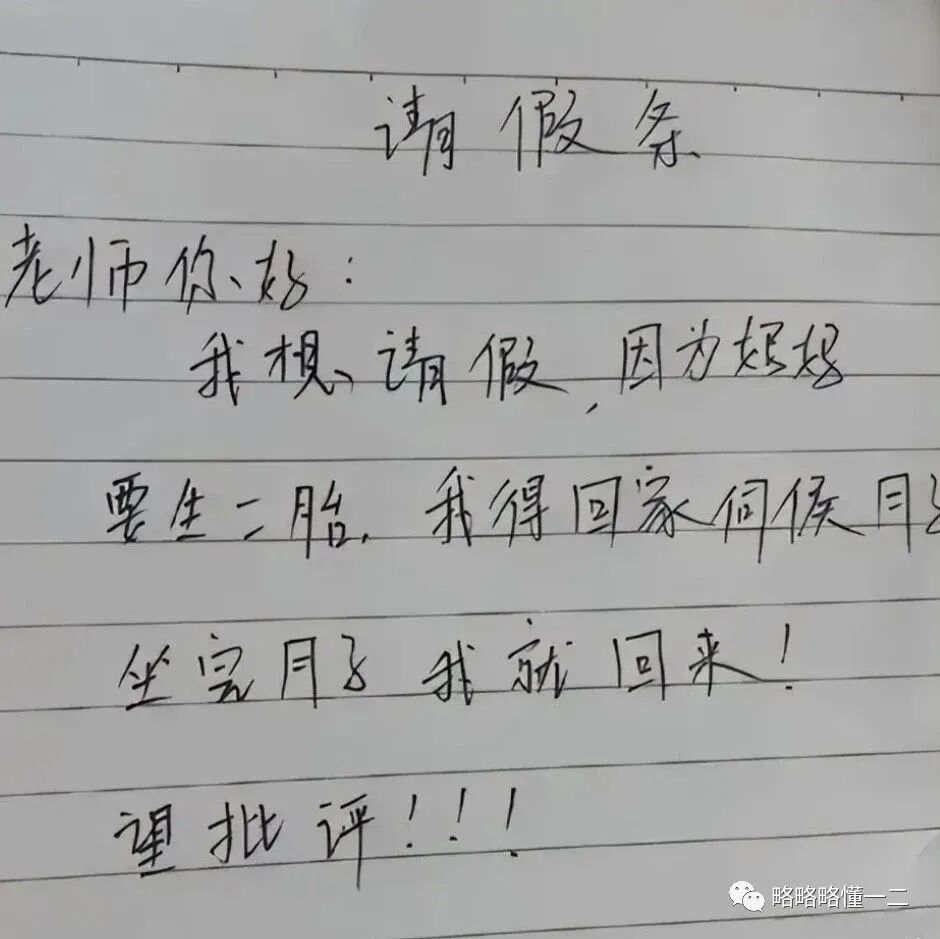 请假条
老师你好：
我想请假，因为妈妈
要生二胎.我得回家伺候月子
坐完月子我就回来！
望批评！！！
略略略懂一二